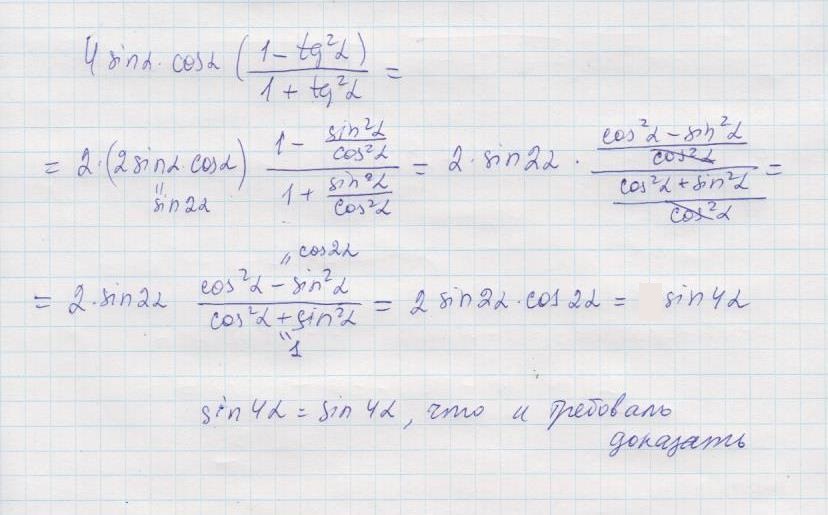 4 sinα · cosα ((1 - tg²α) / (1 + tg²α)) =
= 2 · (2 sinα · cosα) (1 - sin²α/cos²α) / (1 + sin²α/cos²α) = 2 · sin2α · ((cos²α - sin²α)/cos²α) / ((cos²α + sin²α)/cos²α) =
" sin2α
" cos2α
= 2 · sin2α (cos²α - sin²α) / (cos²α + sin²α) = 2 sin2α · cos2α = sin4α
" 1
sin4α = sin4α, что и требовалось
доказать